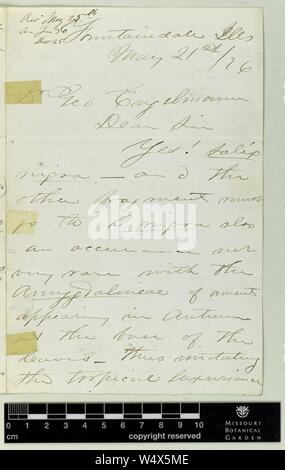 Rec May 25th
Fountaindale Ills
May 21st/76
Dr Geo Engelmann
Dear Sir
Yes! Salix
nigra — and the
other fragment must
go to S. nigra also
an occurrence not
very rare with the
Amygdalineae of aments
appearing in Autumn
at the base of the
leaves — thus imitating
the tropical luxuriance
0 1 2 3 4 5 6 7 8 9 10
cm
copyright reserved
MISSOURI
BOTANICAL
GARDEN
alamy